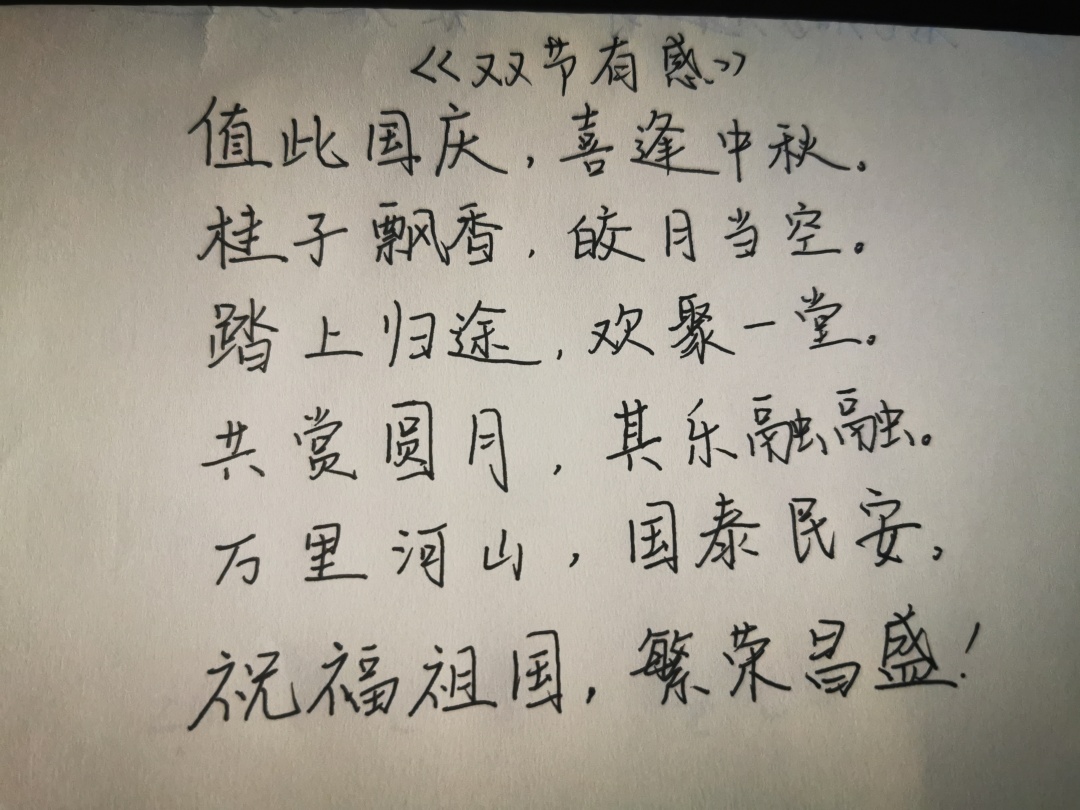 《双节有感》
值此国庆，喜逢中秋。
桂子飘香，皎月当空。
踏上归途，欢聚一堂。
共赏圆月，其乐融融。
万里河山，国泰民安，
祝福祖国，繁荣昌盛！